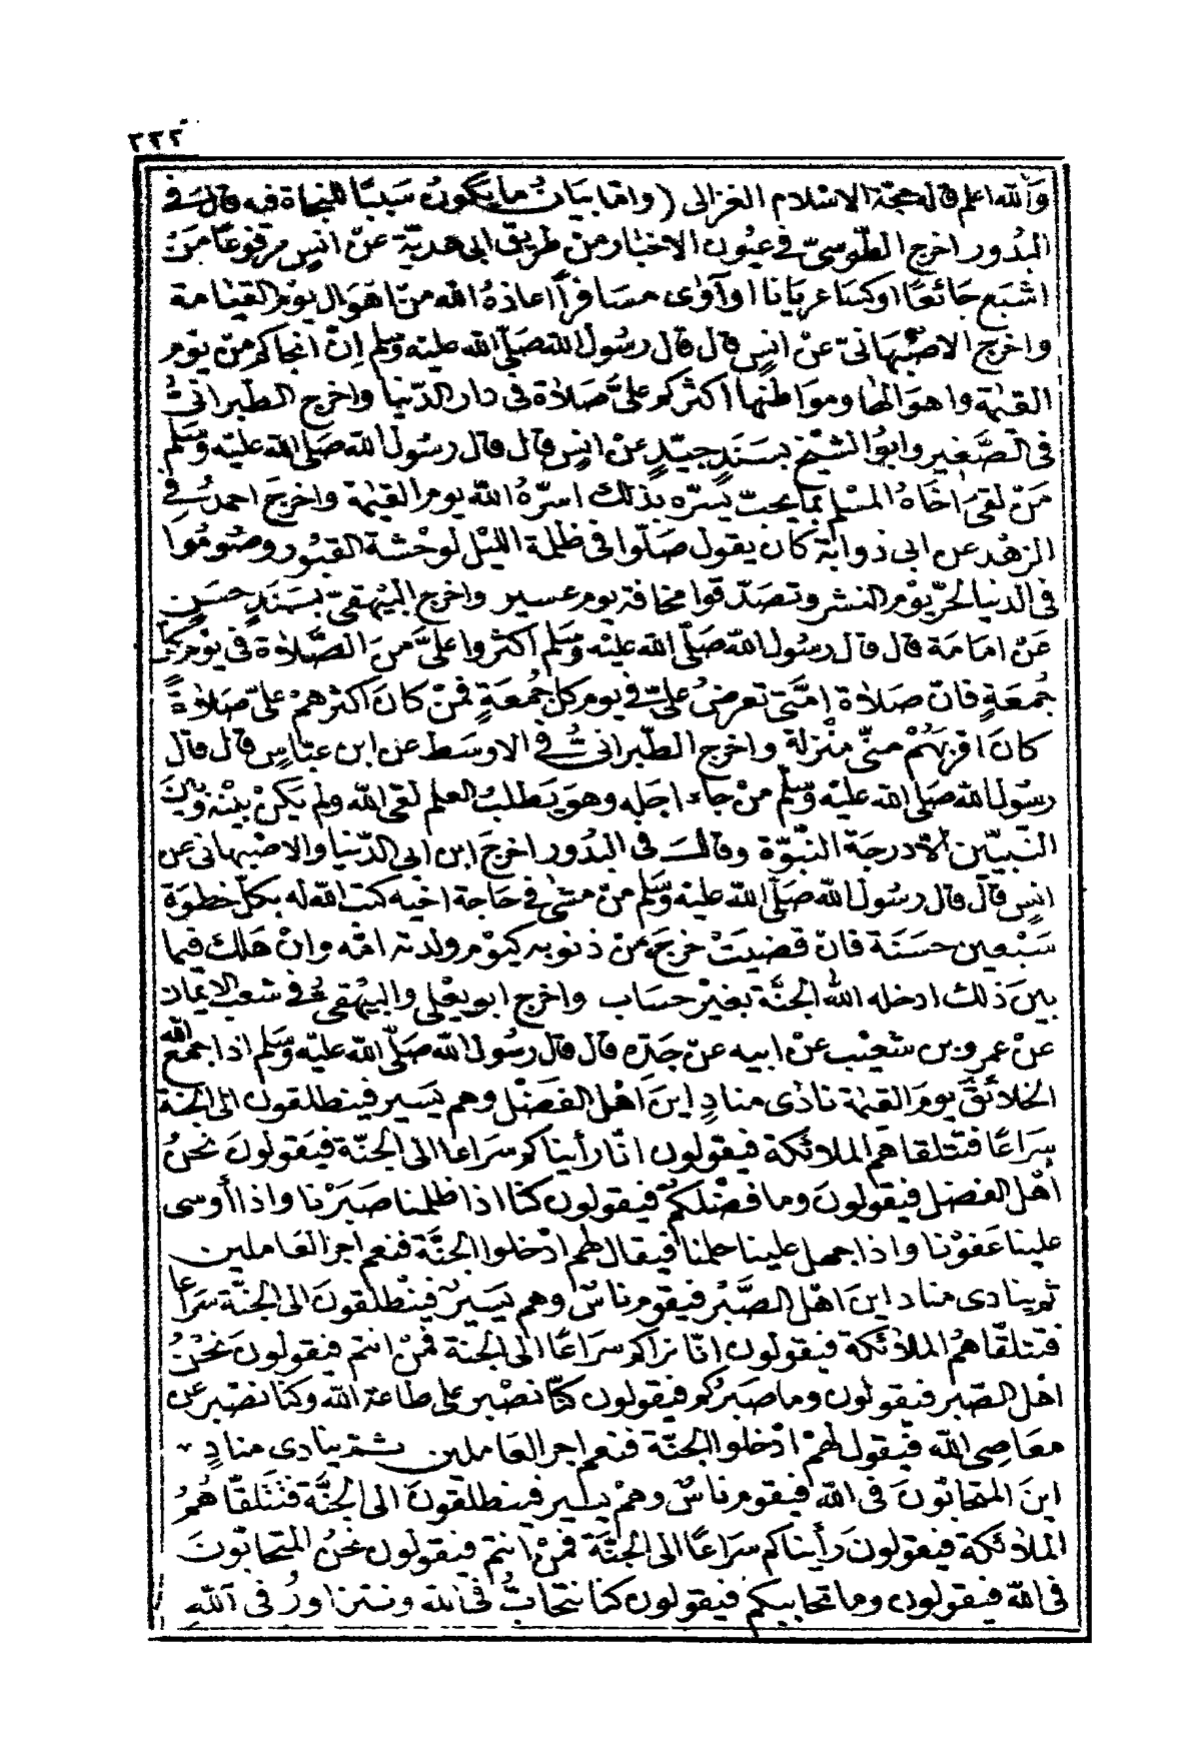 ٢٢٢
والله اعلم قاله حجة الاسلام الغزالى (واما بيان ما يكون سببًا للنجاة فيه قال فى
البدور اخرج الطوسىّ فى عيون الاخبار من طريق ابى هدبة عن انسٍ مرفوعًا من
اشبع جائعًا اوكسا عريانا اوآوى مسافرًا اعاذهُ الله من اهوال يوم القيامة
واخرج الاصبهانىّ عن انسٍ قال قال رسول الله صلى الله عليه وسلم إن انجاكم من يوم
القيمة واهوالها ومواطنها اكثركم علىّ صلاة فى دار الدنيا واخرج الطبرانىّ
فى الصغير وابو الشيخ بسندٍ جيّدٍ عن انسٍ قال قال رسول الله صلى الله عليه وسلم
من لقى اخاه المسلم بما يحبّ يسرّه بذلك اسرّهُ الله يوم القيمة واخرج احمد فى
الزهد عن ابى ذر انه كان يقول صلّوا فى ظلمة الليل لوحشة القبور وصوموا
فى الدنيا لحرّ يوم النشر وتصدّقوا مخافة يوم عسير واخرج البيهقىّ بسندٍ حسنٍ
عن امامة قال قال رسول الله صلى الله عليه وسلم اكثروا علىّ من الصلاة فى يوم كل
جُمعةٍ فان صلاة امّتى تعرض علىّ فى يوم كل جُمعةٍ فمن كان اكثرهم علىّ صلاةً
كان اقربهم منّى منزلة واخرج الطبرانىّ فى الاوسط عن ابن عباسٍ قال قال
رسول الله صلى الله عليه وسلم من جاء اجله وهو يطلب العلم لقى الله ولم يكن بينه وبين
النبيّين الا درجة النبوّة وقال فى البدور اخرج ابن ابى الدنيا والاصبهانى عن
انسٍ قال قال رسول الله صلى الله عليه وسلم من مشى فى حاجة اخيه كتب الله له بكل خطوة
سبعين حسنة فان قضيت خرج من ذنوبه كيوم ولدته امّه وان هلك فيما
بين ذلك ادخله الله الجنّة بغير حساب واخرج ابو يعلى والبيهقىّ فى شعب الايمان
عن عمرو بن شعيب عن ابيه عن جدّه قال قال رسول الله صلى الله عليه وسلم اذا جمع الله
الخلائق يوم القيمة نادى منادٍ اين اهل الفضل وهم يسير فينطلقون الى الجنة
سراعًا فتتلقاهم الملائكة فيقولون انّا رأيناكم سراعا الى الجنّة فيقولون نحنُ
اهل الفضل فيقولون وما فضلكم فيقولون كنّا اذا ظلمنا صبرنا واذا أوسى
علينا عفونا واذا جهل علينا حلمنا فيقال لهم ادخلوا الجنّة فنعم اجر العاملين
ثم ينادى مناد اين اهل الصّبر فيقوم ناسٌ وهم يسيرٌ فينطلقون الى الجنّة سراعا
فتتلقّاهُم الملائكة فيقولون انّا نراكم سراعًا الى الجنة فمن انتم فيقولون نحنُ
اهل الصّبر فيقولون وما صبركم فيقولون كنّا نصبر على طاعة الله وكنا نصبر عن
معاصى الله فيقول لهم ادخلوا الجنّة فنعم اجر العاملين ثم ينادى منادٍ
اين المتحابّون فى الله فيقوم ناسٌ وهم يسير فينطلقون الى الجنّة فتتلقّاهُمُ
الملائكة فيقولون رأيناكم سراعًا الى الجنّة فمن انتم فيقولون نحنُ المتحابّون
فى الله فيقولون وما تحابيكم فيقولون كنا نتحابّ فى الله ونتزاورُ فى اللهِ